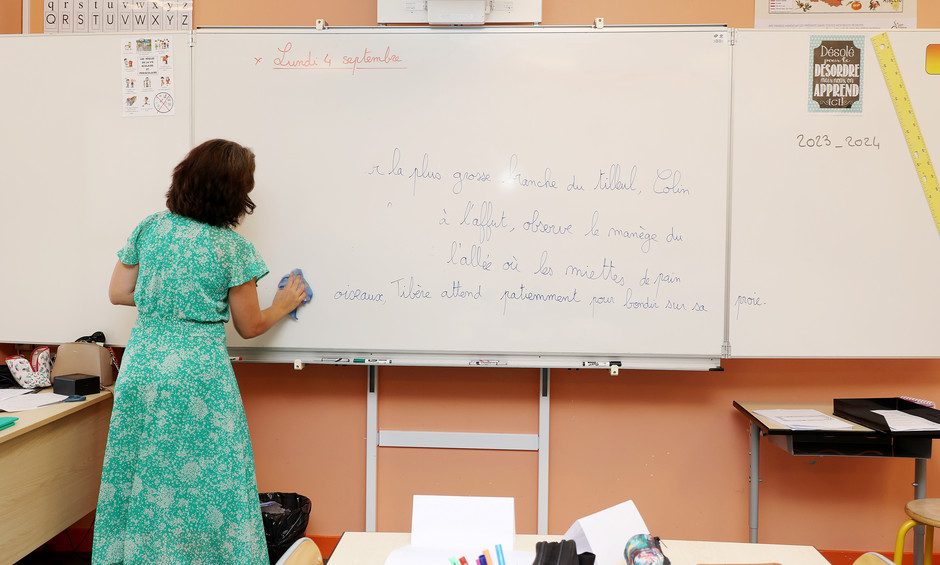 q r s t u v w x y z
Q R S T U V W X Y Z
x Lundi 4 septembre
Désolé
pour le
DÉSORDRE
mais nous, on
APPREND
ICI!
2023_2024
r la plus grosse branche du tilleul, Colin
à l'affut, observe le manège du
l'allée où les miettes de pain
oiseaux. Tibère attend patiemment pour bondir sur sa proie.